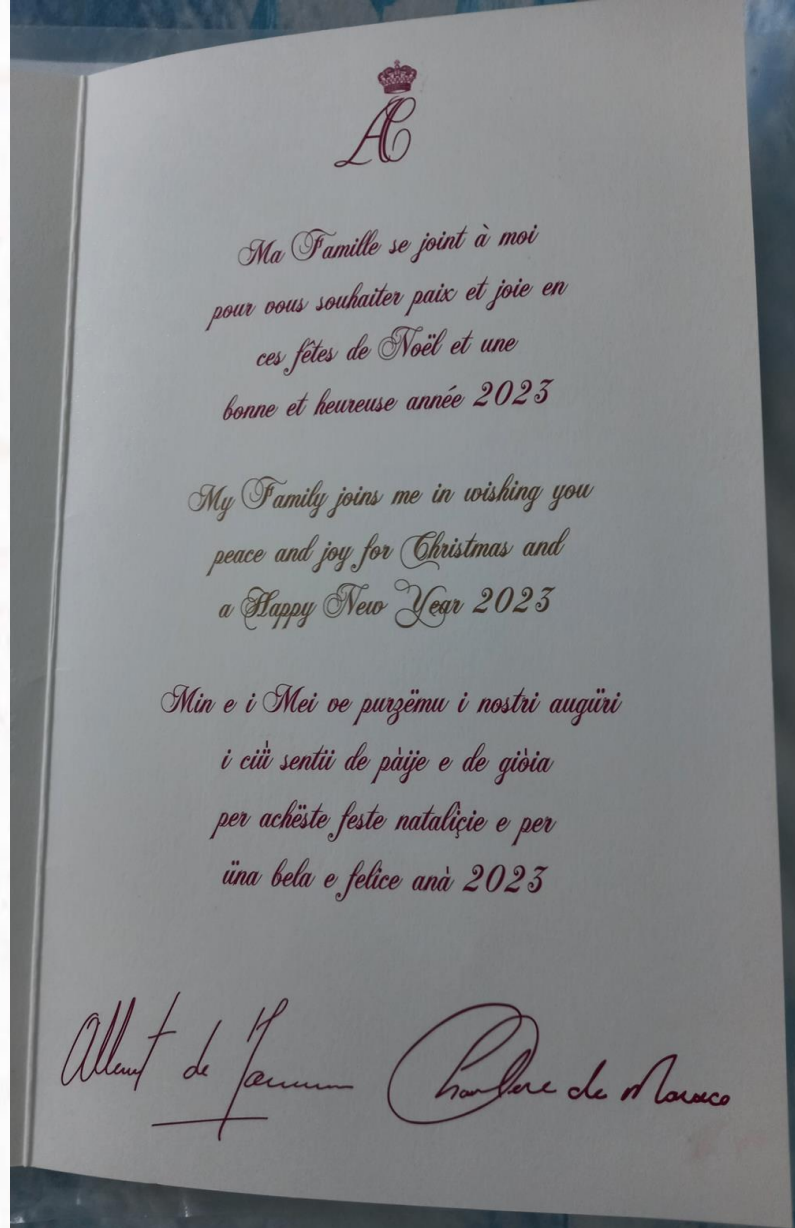 AC
Ma Famille se joint à moi
pour vous souhaiter paix et joie en
ces fêtes de Noël et une
bonne et heureuse année 2023
My Family joins me in wishing you
peace and joy for Christmas and
a Happy New Year 2023
Min e i Mei ve purzëmu i nostri augüri
i ciǜ sentii de pàije e de giòia
per achëste feste nataliçie e per
üna bela e felice anà 2023
Albert de Monaco Charlene de Monaco